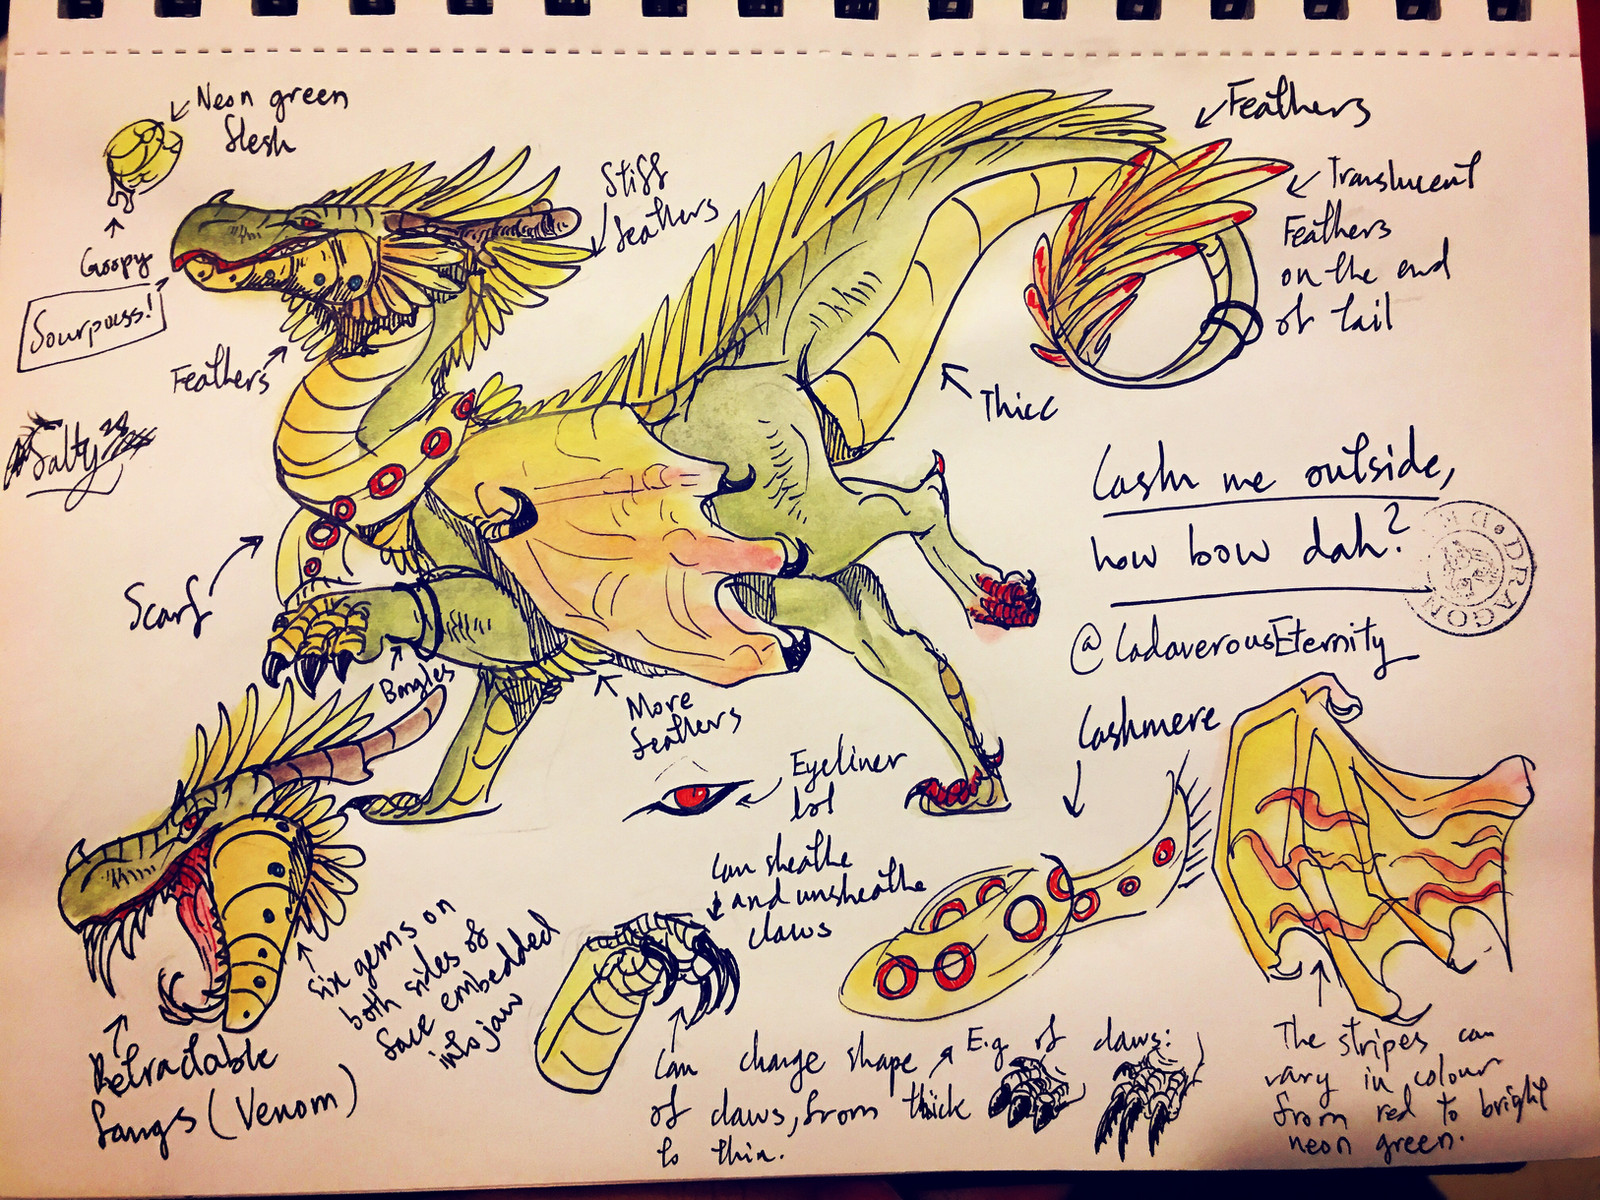 Neon green
flesh
Goopy
Sourpuss!
Feathers
Stiff
feathers
Feathers
Translucent
Feathers
on the end
of tail
Thicc
Salty
Scarf
Bangles
More
feathers
Cashn me outside,
how bow dah?
DRAGON
@CadaverousEternity
Cashmere
Eyeliner
lol
Can sheathe
and unsheathe
claws
Six gems on
both sides of
face embedded
into jaw
Retractable
fangs (Venom)
Can change shape
of claws, from thick
to thin.
E.g of claws:
The stripes can
vary in colour
from red to bright
neon green.